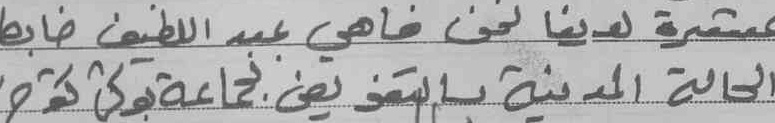 عتبرة لدينا نحن فاهي عبد اللطيف ضابط
الحالة المدنية بالتفويض بجماعة بوكركوح